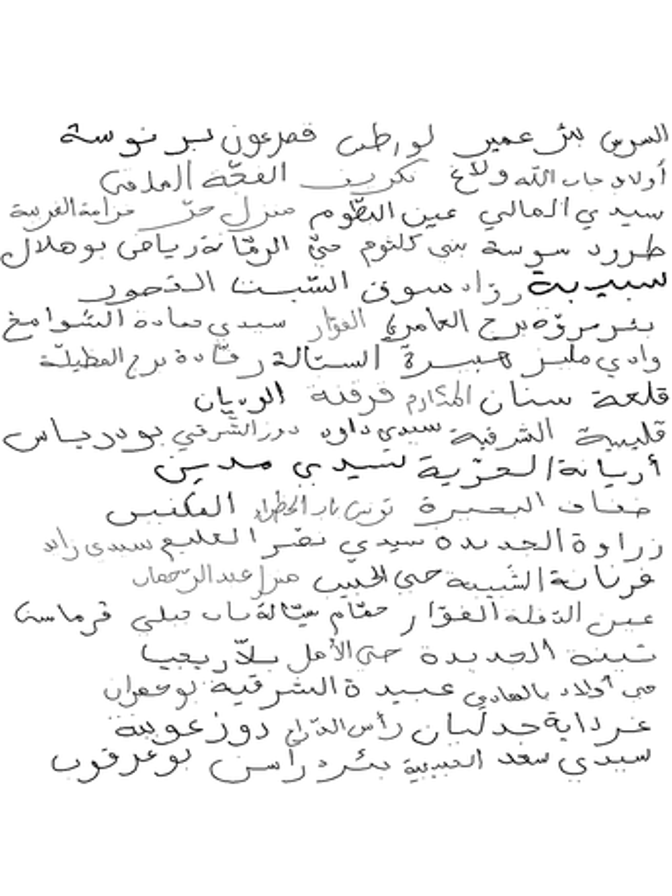 السرس بئر عمير لواطب قصرعون نبر نوسة
أولاد جاب الله ولاغ تكريف الفجّة
سيدي المالي عين البطّوم منزل حرّ مزامة الغربية
طرود سوسة بني كلثوم حيّ الرمّانة رياض بوهلال
سبيبة رزاد سوق السّبت القصور
بئر مروّة برج العامري الفوّار سيدي حمادة الشوامخ
وادي مليز هبيرة الستالة رقّادة برج العظيليّة
قلعة سنان المكارم قرقنة الريان
قليبية الشرقية سيدي داود دوز الشرقي بودرباس
أريانة العزّية لسيدي مدين
ضفاف البحيرة تونس باب الخضراء المكنس
زراوة الجديدة سيدي نصر العليم سيدي زايد
غرنانة الشبيبة حي الحبيب منزل عبد الرحمان
عين الدّفلة الفوّار حمّام ستالة باب قبلي قرماسنا
تبنة الجديدة حيّ الأمل بلاّريجيا
حي أولاد بالهادي عبيدة الشرقية بوحمران
غرداية جدليان رأس الذراع دوز عوينة
سيدي سعد الحبيبية بئر دراسن بوعرقوب